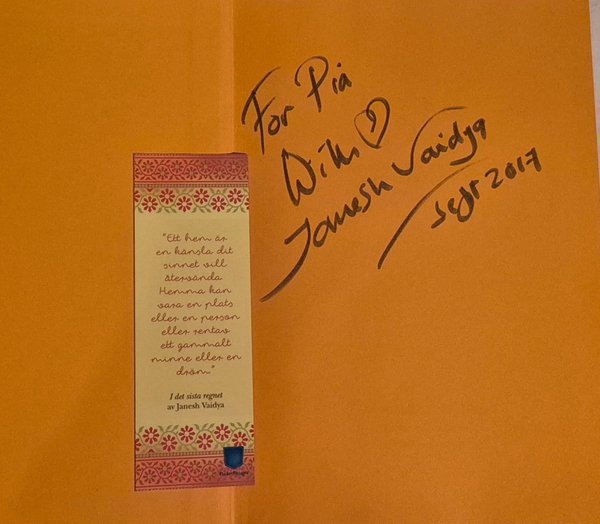 For Pia
With
Janesh Vaidya
Sept 2017
"Ett hem är
en känsla dit
sinnet vill
återvända.
Hemma kan
vara en plats
eller en person
eller rentav
ett gammalt
minne eller en
dröm."
I det sista regnet
av Janesh Vaidya